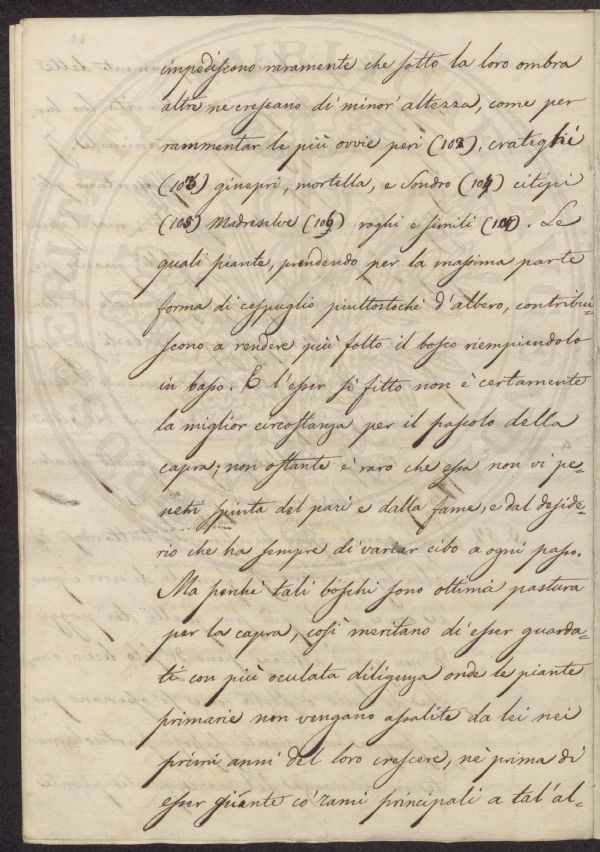 impediscono raramente che sotto la loro ombra
altre ne crescano di minor' altezza, come per
rammentar le più ovvie peri (102), crateghi
(103) ginepri, mortella, e Sondro (104) citipi
(105) Madreselve (106) roghi e simili (107). Le
quali piante, prendendo per la massima parte
forma di cespuglio piuttostoché d'albero, contribui-
scono a rendere più folto il bosco riempiendolo
in basso. E l'esser sì fitto non è certamente
la miglior circostanza per il pascolo della
capra; non ostante è raro che essa non vi pe-
netri spinta del pari e dalla fame, e dal deside-
rio che ha sempre di variar cibo a ogni passo.
Ma perché tali boschi sono ottima pastura
per la capra, così meritano di esser guarda-
ti con più oculata diligenza onde le piante
primarie non vengano assalite da lei nei
primi anni del loro crescere, nè prima di
esser giunte co' rami principali a tal' al-